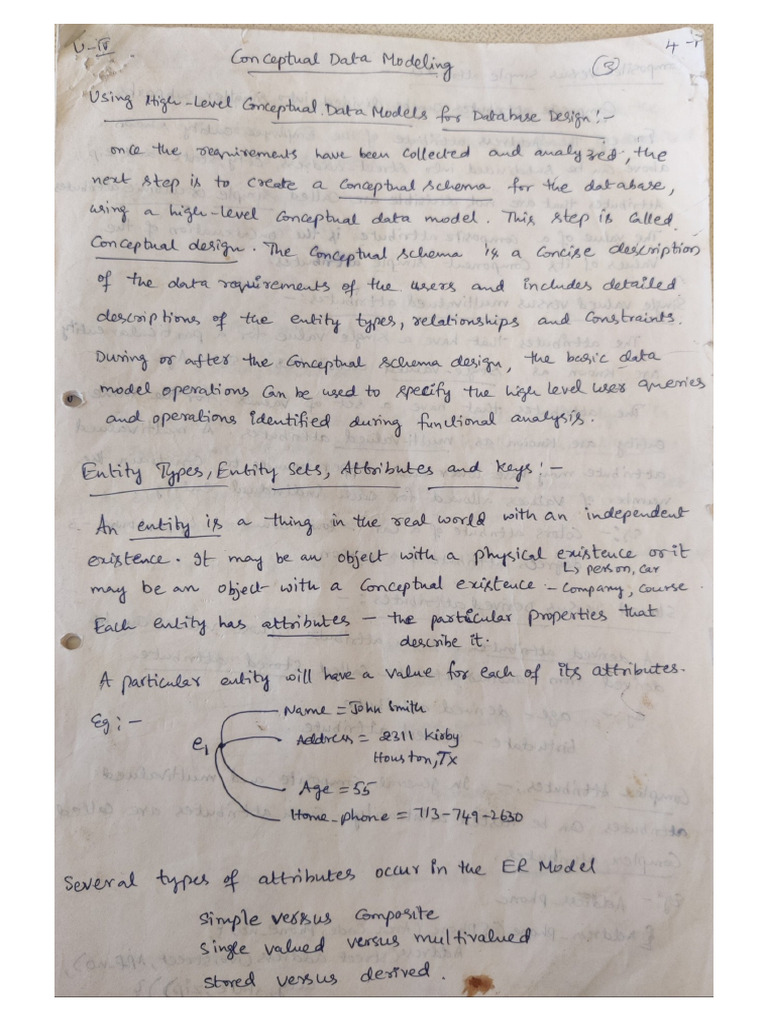 U-IV
4-1
Conceptual Data Modeling
3
Using High-Level Conceptual Data Models for Database Design:-
once the requirements have been collected and analyzed, the
next step is to create a conceptual schema for the database,
using a high-level conceptual data model. This step is called
Conceptual design. The conceptual schema is a concise description
of the data requirements of the users and includes detailed
descriptions of the entity types, relationships and constraints.
During or after the conceptual schema design, the basic data
model operations can be used to specify the high level user queries
and operations identified during functional analysis.
Entity Types, Entity Sets, Attributes and Keys:-
An entity is a thing in the real world with an independent
existence. It may be an object with a physical existence or it
↳ person, car
may be an object with a conceptual existence - company, course.
Each entity has attributes - the particular properties that
describe it.
A particular entity will have a value for each of its attributes.
Eg:-
Name = John Smith
e1
Address = 2311 Kirby
Houston, Tx
Age = 55
Home_phone = 713-749-2630
Several types of attributes occur in the ER Model
Simple versus Composite
Single valued versus multivalued
Stored versus derived.